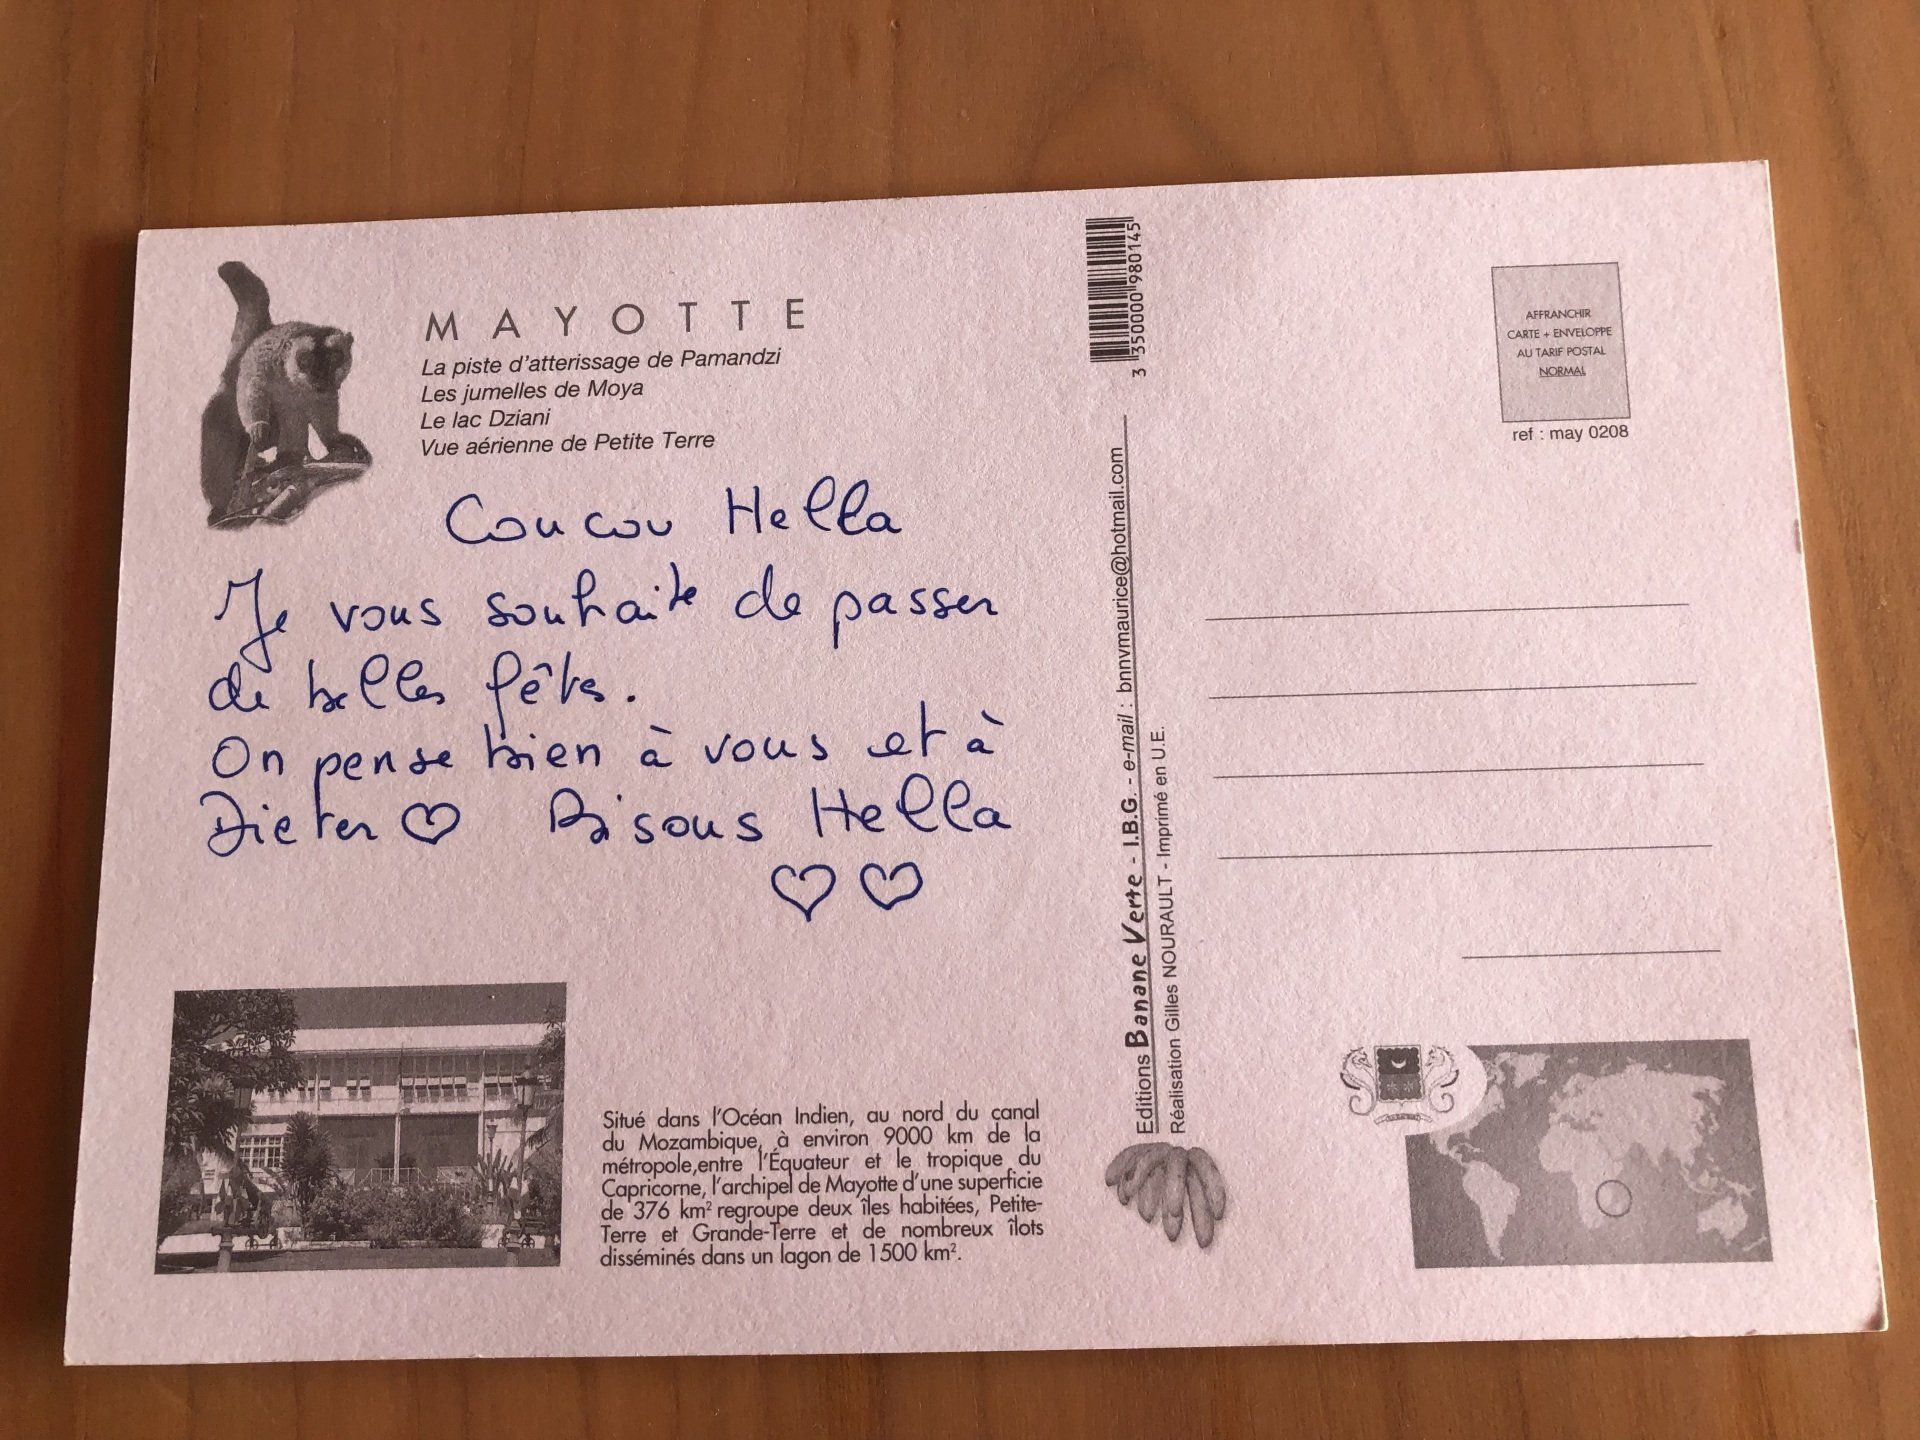 MAYOTTE
La piste d'atterissage de Pamandzi
Les jumelles de Moya
Le lac Dziani
Vue aérienne de Petite Terre
Coucou Hella
Je vous souhaite de passer
de belles fêtes.
On pense bien à vous et à
Dieter ♡ Bisous Hella
♡ ♡
Situé dans l'Océan Indien, au nord du canal
du Mozambique, à environ 9000 km de la
métropole,entre l'Équateur et le tropique du
Capricorne, l'archipel de Mayotte d'une superficie
de 376 km² regroupe deux îles habitées, Petite-
Terre et Grande-Terre et de nombreux îlots
disséminés dans un lagon de 1500 km².
3 350000 980145
Editions Banane Verte - I.B.G. - e-mail : bnnvmaurice@hotmail.com
Réalisation Gilles NOURAULT - Imprimé en U.E.
AFFRANCHIR
CARTE + ENVELOPPE
AU TARIF POSTAL
NORMAL
ref : may 0208